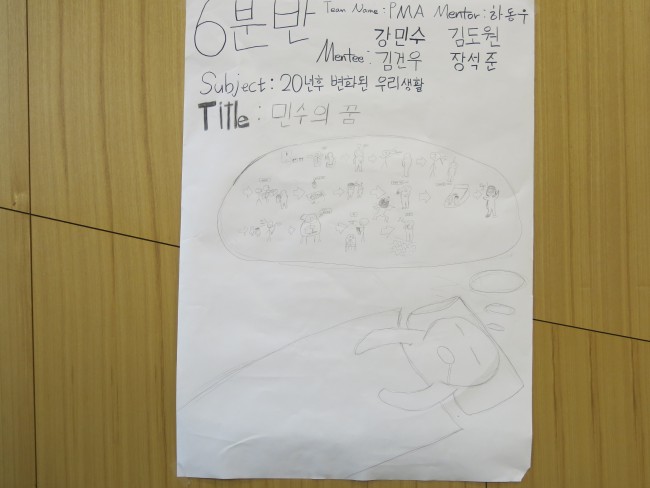 6분반 Team Name : PMA Mentor : 하동우
강민수 김도원
Mentee : 김건우 장석준
Subject : 20년후 변화된 우리생활
Title : 민수의 꿈